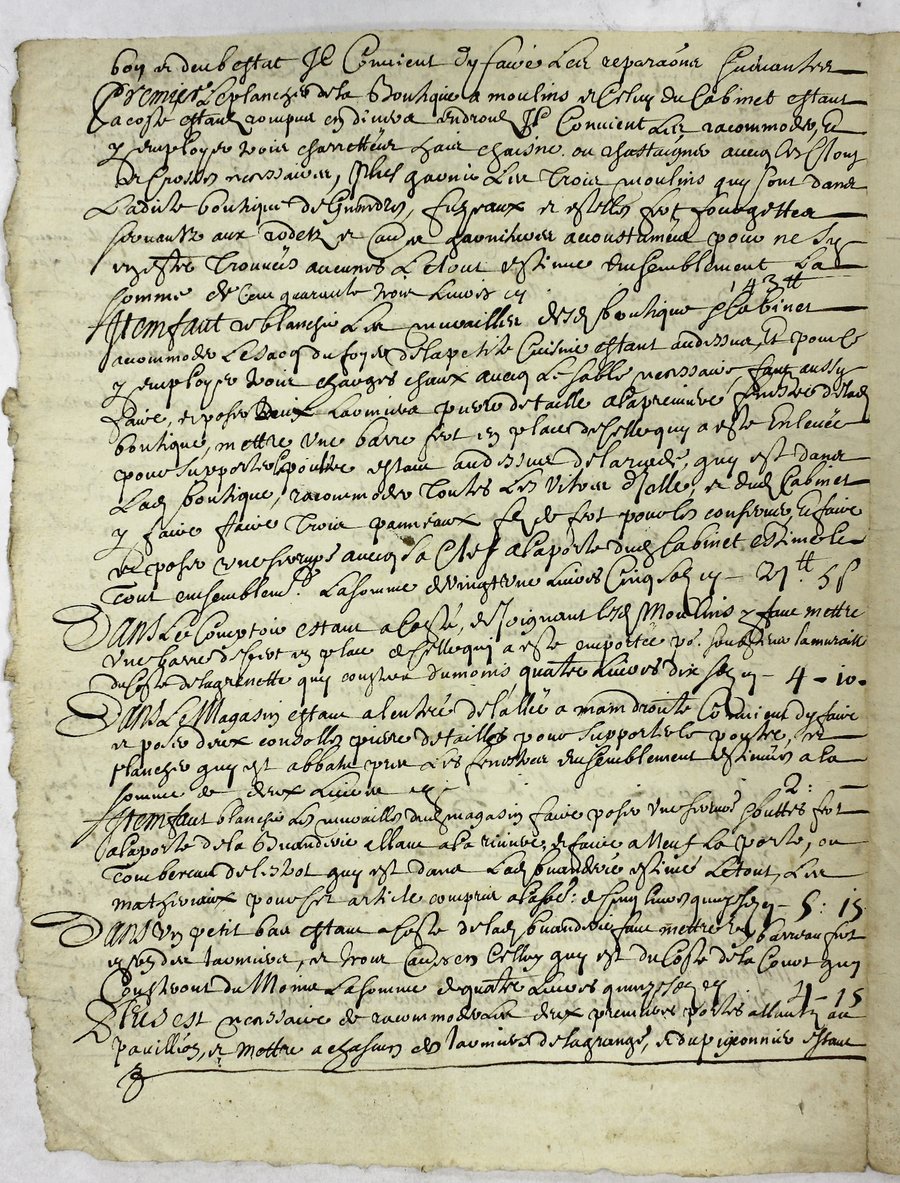 bon et deub estat Il Convient dy faire Les reparaõns suivantes
Premier Le plancher de la Boutique a moulins et Celuy du Cabinet estant
a coste estant rompus en divers endroits Il Convient Les racommoder, Et
y employer trois charretteés chaisne ou chastaigner avecq les Clous
et Crosses necessaires, Plus garnir Les Trois moulins quy sont dans
Ladicte boutique de fuzeaux et fert
servants aux rodetz et accoustumeés pour ne sy
en estre Trouveés aucunes Le tout estimé Ensemblement La
somme de Cent quarante trois Livres cy 143tt
Item faut reblanchir Les murailles desd boutique & Cabinet
accommoder Le du foyer de la petite Cuisine estant au dessus, Et pour ce
y employer trois charges chaux avecq Le sable necessaire, faut aussy
faire, et poser deux Larmiers pierre de taille a la premiere fenestre de lad
boutique, mettre Une barre fert en place de Celle quy a esté Enleveé
pour supporter la poultre estant au dessus de la quy est dans
Lad boutique, racommoder Toutes Les Vitres dIcelle et dud Cabinet
y faire faire Trois panneaux fil de fert pour les conserver, Et faire
et poser une serrure avecq sa Clef a la porte dud Cabinet estimé le
Tout ensemblemt. La somme de vingt une Livres Cinq solz cy – 21tt 5s
Dans Le Comptoir estant a Costé, et Joignant lesd Moulins y faut mettre
Une barre de fert en place de Celle quy a esté emportée pr. soubstenir la muraille
du Costé de la quy coustera du moins quatre Livres dix solz cy – 4 – 10.
Dans Le Magasin estant a lentrée de Lalleé a main droite Convient dy faire
et poser deux consolles pierre de tailles pour supporter le poutre, et
plancher quy est abbatu pres Les fenestres Ensemblement estimeés a la
somme de deux Livres cy 2:
Item faut blanchir Les murailles dud magasin faire poser une serrure & fert
a la porte de la Buanderie allant a la riviere, et faire a Neuf La porte, ou
Tombereau de quy est dans Lad buanderie estimé Le tout, Les
matheriaux pour cet article compris a la so: de Cinq livres quinze solz cy – 5: 15
Dans un petit bas estant a Costé de lad buanderie faut mettre barreau fert
et Larmiers, et trois en Celluy quy est du Costé de la Court quy
Cousteront du Moins La somme de quatre Livres quinze solz cy 4 – 15
Plus est necessaire de racommoder Les deux premieres portes allants au
pavillion, et mettre a chascun des Larmiers de la grange, et du pigeonnier estant